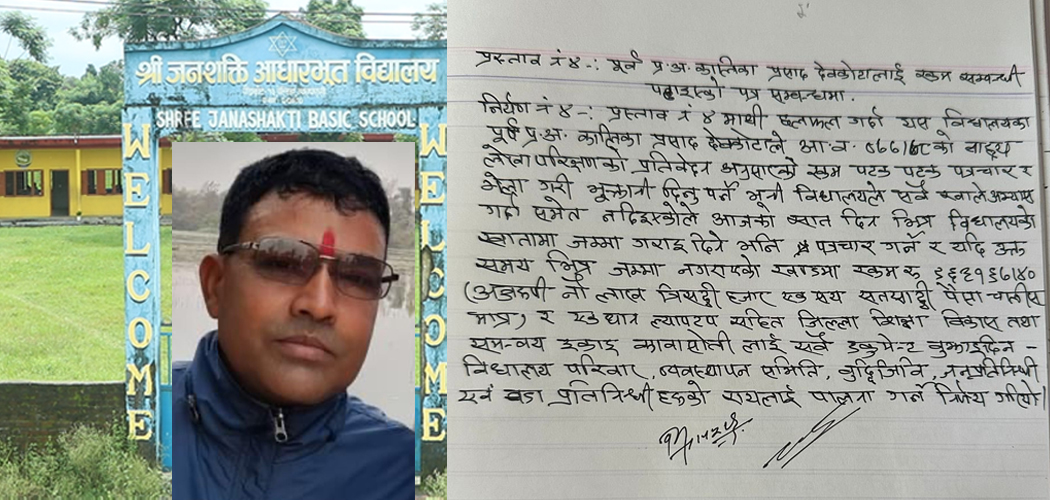 श्री जनशक्ति आधारभूत विद्यालय
SHREE JANASHAKTI BASIC SCHOOL
WELCOME
WELCOME
प्रस्ताव नं ४ -: पूर्व प्र.अ. कालिका प्रसाद देवकोटालाई रकम सम्बन्धी
पठाइएको पत्र सम्बन्धमा.
निर्णय नं ४ -: प्रस्ताव नं ४ माथी छलफल गर्दा यस विद्यालयका
पूर्व प्र.अ. कालिका प्रसाद देवकोटाले आ.व. को वाह्य
लेखा परिक्षणको प्रतिवेदन अनुसारको रकम पटक पटक पत्रचार र
भेला गरी भुक्तानी दिनु पर्ने भनी विद्यालयले सर्व
गर्दा समेत नदिइएकोले आजका सात दिन भित्र विद्यालयको
खातामा जम्मा गराइ दिने भनि पत्रचार गर्ने र यदि उक्त
समय भित्र जम्मा नगराएको खण्डमा रकम रु
नौ लाख त्रिसठ्ठी हजार एक सय सतसठ्ठी पैसा चालीस
मात्र) र एक थान ल्यापटप सहित जिल्ला शिक्षा विकास तथा
समन्वय इकाइ कावासोती लाई सर्व डकुमेन्ट बुझाइदिन -
विद्यालय परिवार, व्यवस्थापन समिति, बुद्धिजिवि, जनप्रतिनिधी
एवं वडा प्रतिनिधी हरुको रायलाई पालना गर्ने निर्णय गरियो।